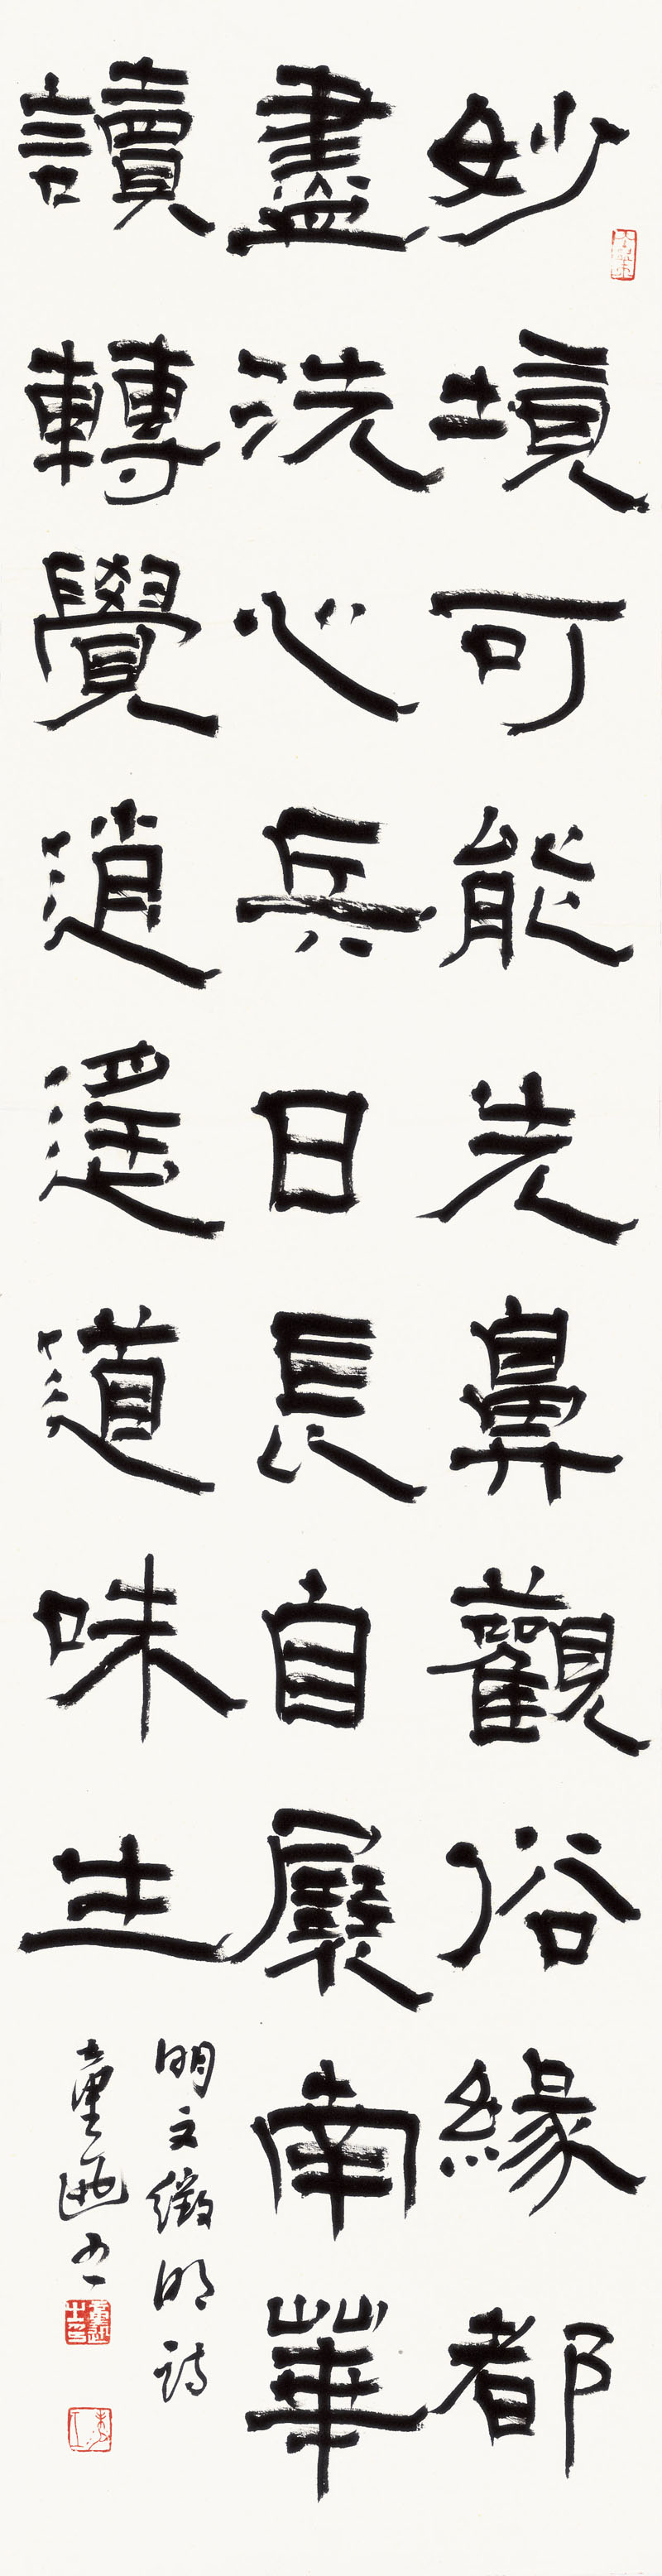 妙境可能先鼻觀俗緣都
盡洗心兵日長自展南華
讀轉覺逍遙道味生
明文徵明詩